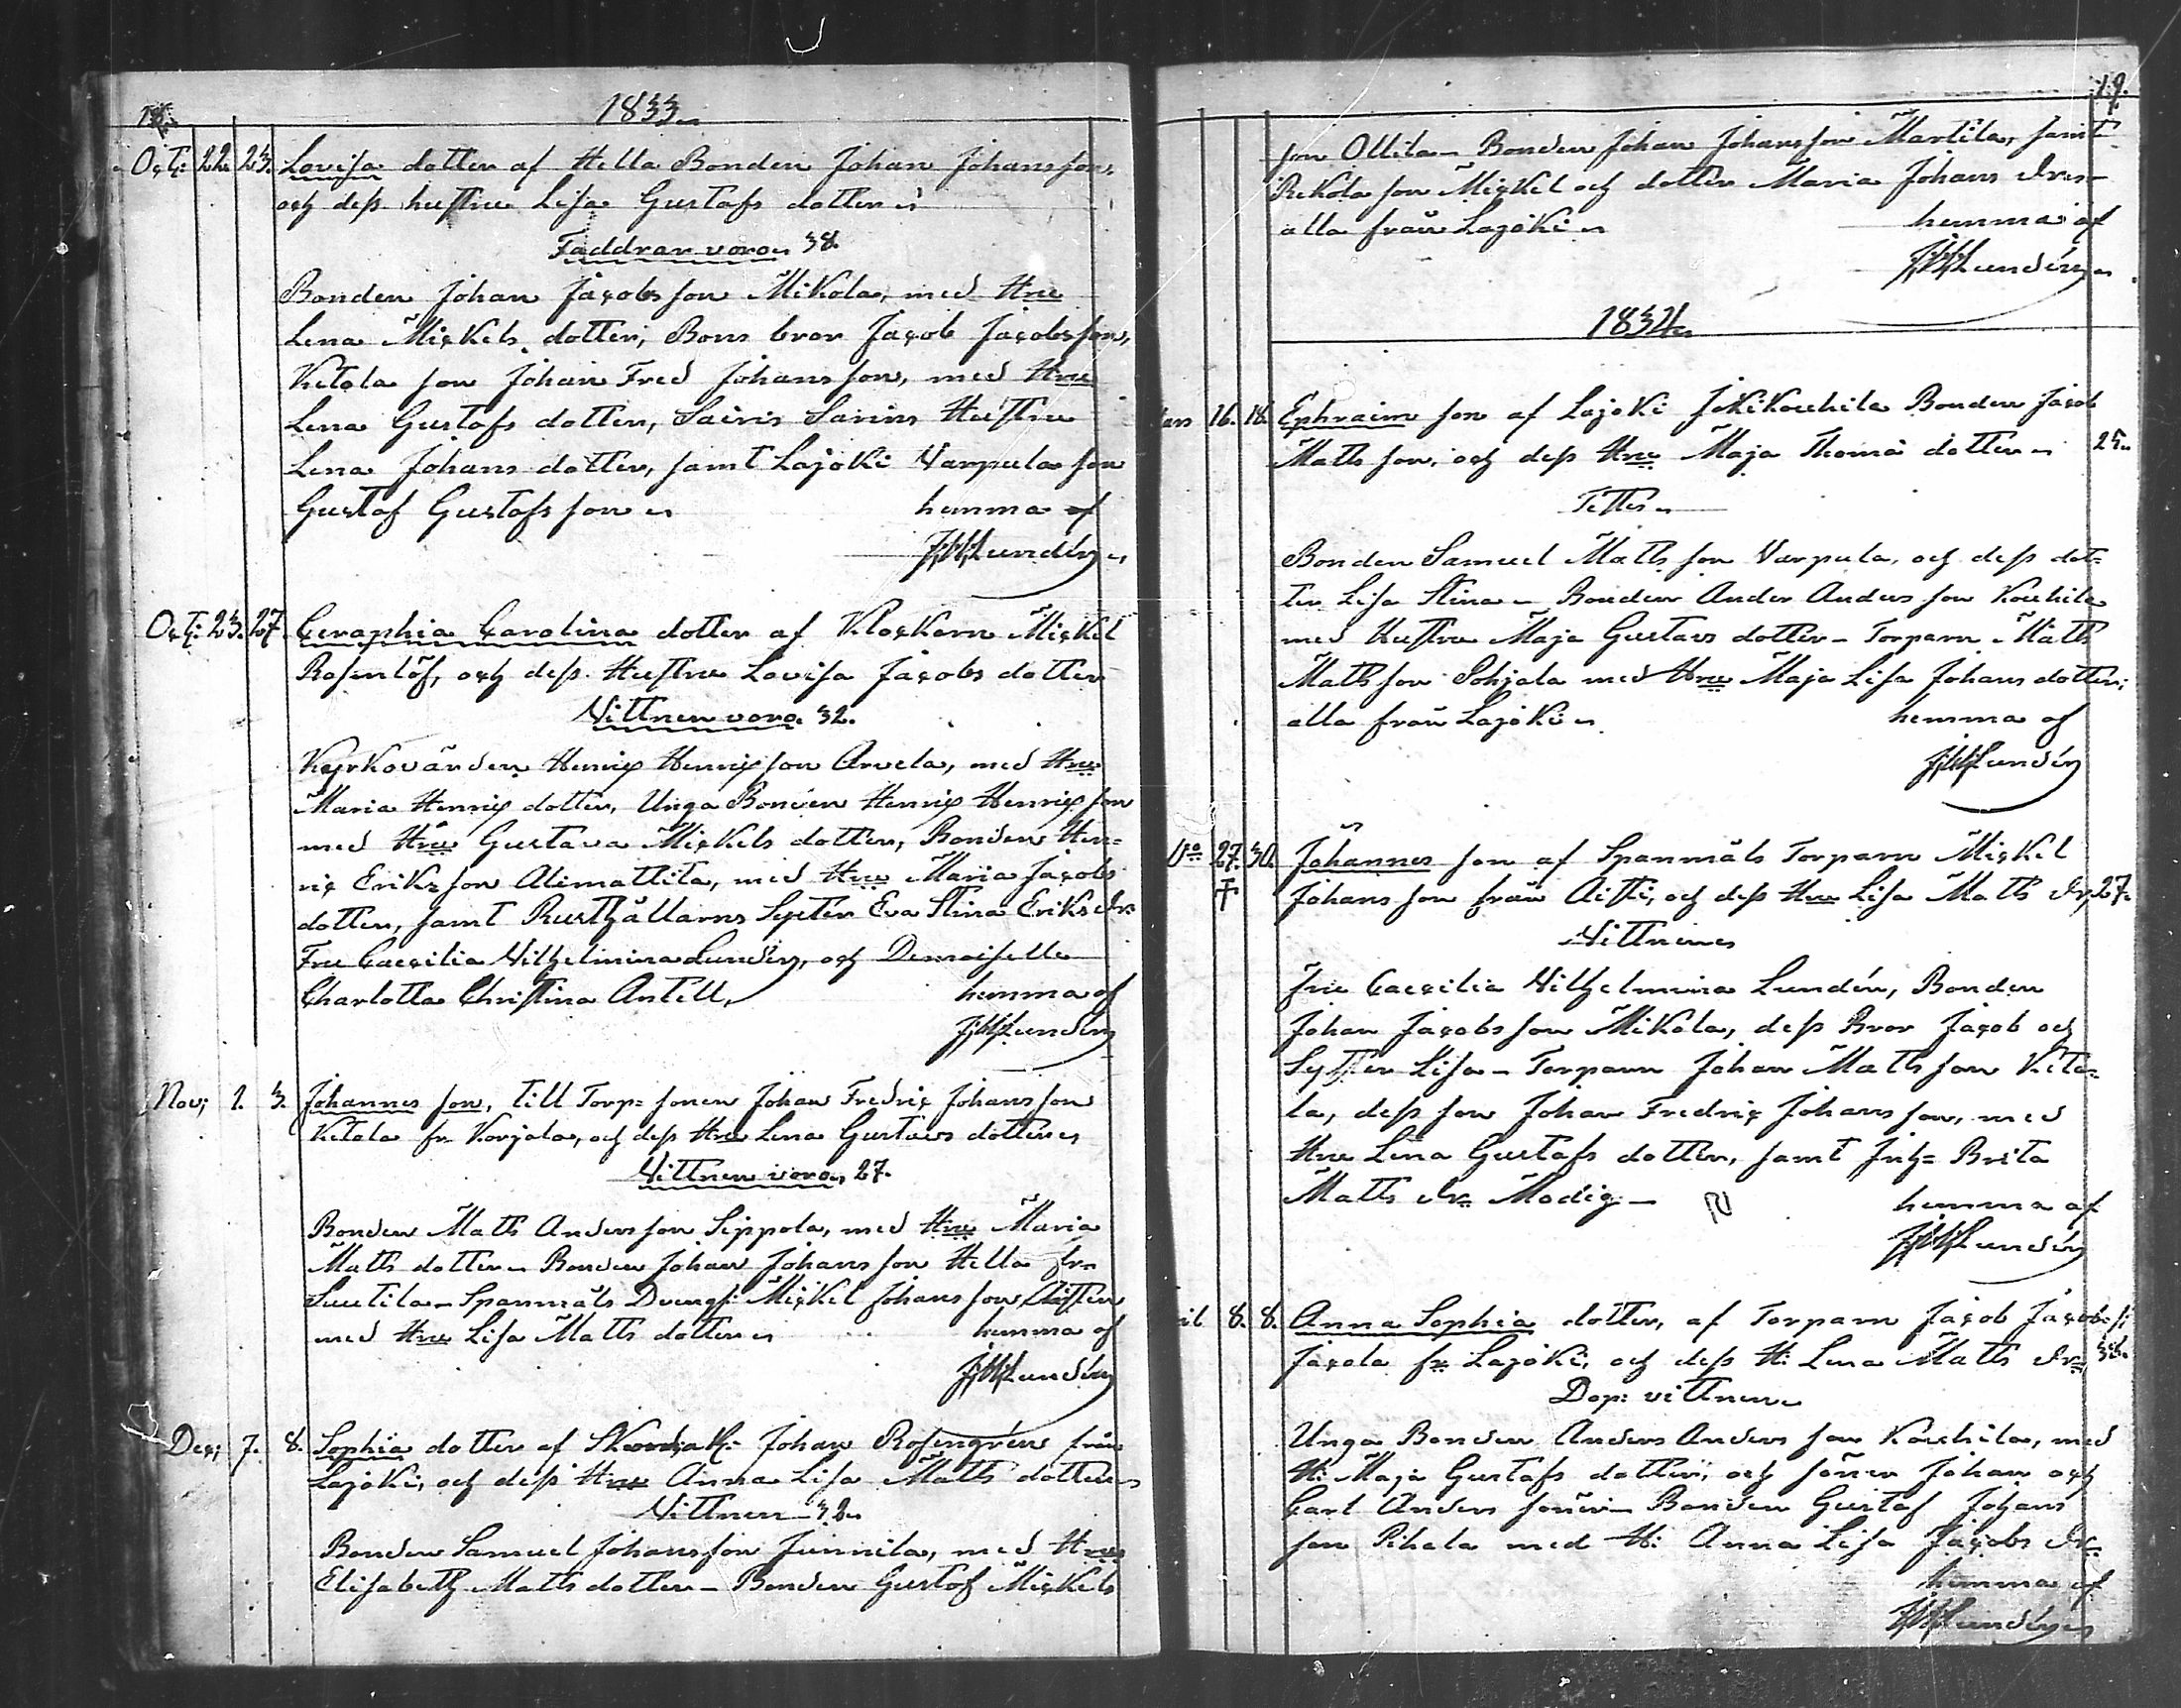 18.
1833.
Oct: 22. 23. Lovisa dotter af Hella Bonden Johan Johansson,
och dess hustru Lisa Gustafs dotter
Faddrar voro 38.
Bonden Johan Jacobsson Mikola, med Hru
Lena Mickels dotter, Bons bror Jacob Jacobsson,
Ketola son Johan Fred Johansson, med Hru
Lena Gustafs dotter, Hustru
Lena Johans dotter, samt Lajoki Varpula son
Gustaf Gustafsson
hemma af
Lundén
Oct: 23. 27. Ceraphia Carolina dotter af Klockarn Mickel
Rosenlöf, och dess Hustru Lovisa Jacobs dotter
Vittnen voro 32.
Kyrkovärden Henric Henricsson Arvela, med Hru
Maria Henrics dotter, Unga Bonden Henric Henricsson
med Hru Gustava Mickels dotter, Bonden Hen=
ric Eriksson Alimattila, med Hru Maria Jacobs
dotter, samt Rusthållarns Syster Eva Stina Eriks dr.
Fru Caecilia Vilhelmina Lundén, och Demoiselle
Charlotta Christina Antell,
hemma af
Lundén
Nov; 1. 3. Johannes son, till Torp= sonen Johan Fredric Johansson
Ketola fr. Korjala, och dess Hru Lena Gustavs dotter
Vittnen voro, 27.
Bonden Matts Andersson Seppola, med Hru Maria
Matts dotter - Bonden Johan Johansson Hella fr.
Suutila - Spannmåls Drengs: Mickel Johansson, Aisten
med Hru Lisa Matts dotter
hemma af
Lundén
Dec; 7. 8. Sophia dotter af Johan Rosengrén från
Lajoki, och dess Hru Anna Lisa Matts dotter
Vittnen - 32.
Bonden Samuel Johansson Junnila, med Hru
Elisabeth Matts dotter - Bonden Gustaf Mickels
19.
son Ollila - Bonden Johan Johansson Martila, samt
Rekola son Mickel och dotter Maria Johans dr.
alla från Lajoki
hemma af
Lundén
1834.
Mars 16. 18. Ephraim son af Lajoki Jokikouhila Bonden Jacob
Mattsson, och dess Hru Maja Thoma dotter 25.
Testes
Bonden Samuel Mattsson Varpula, och dess dot=
ter Lisa Stina - Bonden Ander Andersson Kouhila
med Hustru Maja Gustavs dotter - Torparn Matts
Mattsson Pohjala med Hru Maja Lisa Johans dotter;
alla från Lajoki
hemma af
Lundén
27. 30. Johannes son af Spannmåls Torparn Mickel
Johansson från Aisti, och dess Hru Lisa Matts dr, 27.
Vittnen
Fru Caecilia Vilhelmina Lundén, Bonden
Johan Jacobsson Mikola, dess Bror Jacob och
Syster Lisa - Torparn Johan Mattsson Keto=
la, dess son Johan Fredric Johansson, med
Hru Lena Gustafs dotter, samt Inh= Brita
Matts dr. Modig -
hemma af
Lundén
8. 8. Anna Sophia dotter, af Torparn Jacob Jacobss:
Jacola fr. Lajoki, och dess H: Lena Matts dr. 38.
Dop: vittnen
Unga Bonden Anders Andersson Kouhila, med
H: Maja Gustafs dotter, och söner Johan och
Carl Anders söner - Bonden Gustaf Johans
son Pihala med H: Anna Lisa Jacobs dr.
hemma af
Lundén